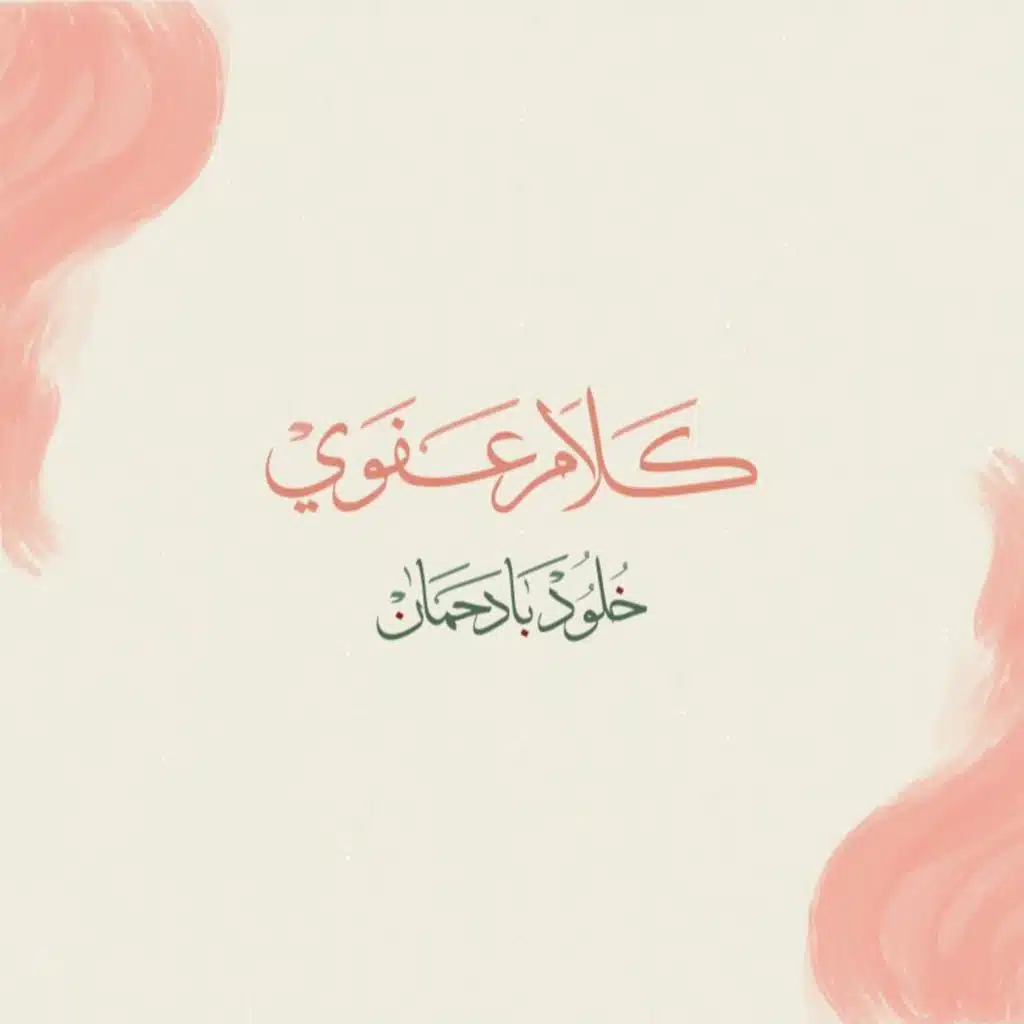 كَلَام عَفَوَيْ
خُلُوُدْ بَادَحَمَانْ